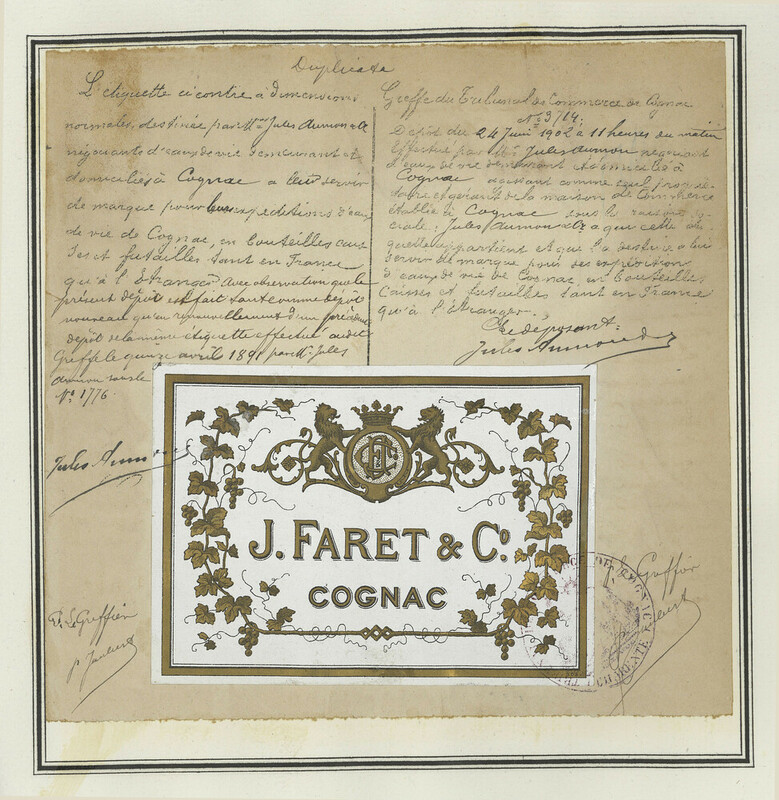 Duplicata
L'étiquette ci contre à dimensions
normales, destinée par Mr. Jules Aumon & Co
négociants d'eaux de vie demeurant et
domiciliés à Cognac a leur servir
de marque pour leurs expéditions d'eaux
de vie de Cognac, en bouteilles cais
ses et futailles tant en France
qu'à l'Etranger avec observation que le
présent dépôt est fait tant comme dépôt
nouveau qu'en renouvellement d'un précédent
dépôt de la même étiquette effectué au dit
Greffe le quinze avril 1891 par Mr. Jules
Aumon sous le
No. 1776.
Jules Aumon
Greffe du Tribunal de Commerce de Cognac
No. 3714.
Dépôt du 24 Juin 1902 à 11 heures du matin
effectué par Mr. Jules Aumon négociant
d'eaux de vie demeurant et domicilié à
Cognac agissant comme
et gérant de la maison de Commerce
établie à Cognac sous la raison so
ciale: Jules Aumon & Co a que cette éti
quette appartient et qui l'a destinée a lui
servir de marque pour ses expéditions
d'eaux de vie de Cognac, en bouteilles,
Caisses et futailles tant en France
qu'à l'étranger.
Le déposant:
Jules Aumon
J. FARET & Co
COGNAC
Le Greffier
Le Greffier
COGNAC